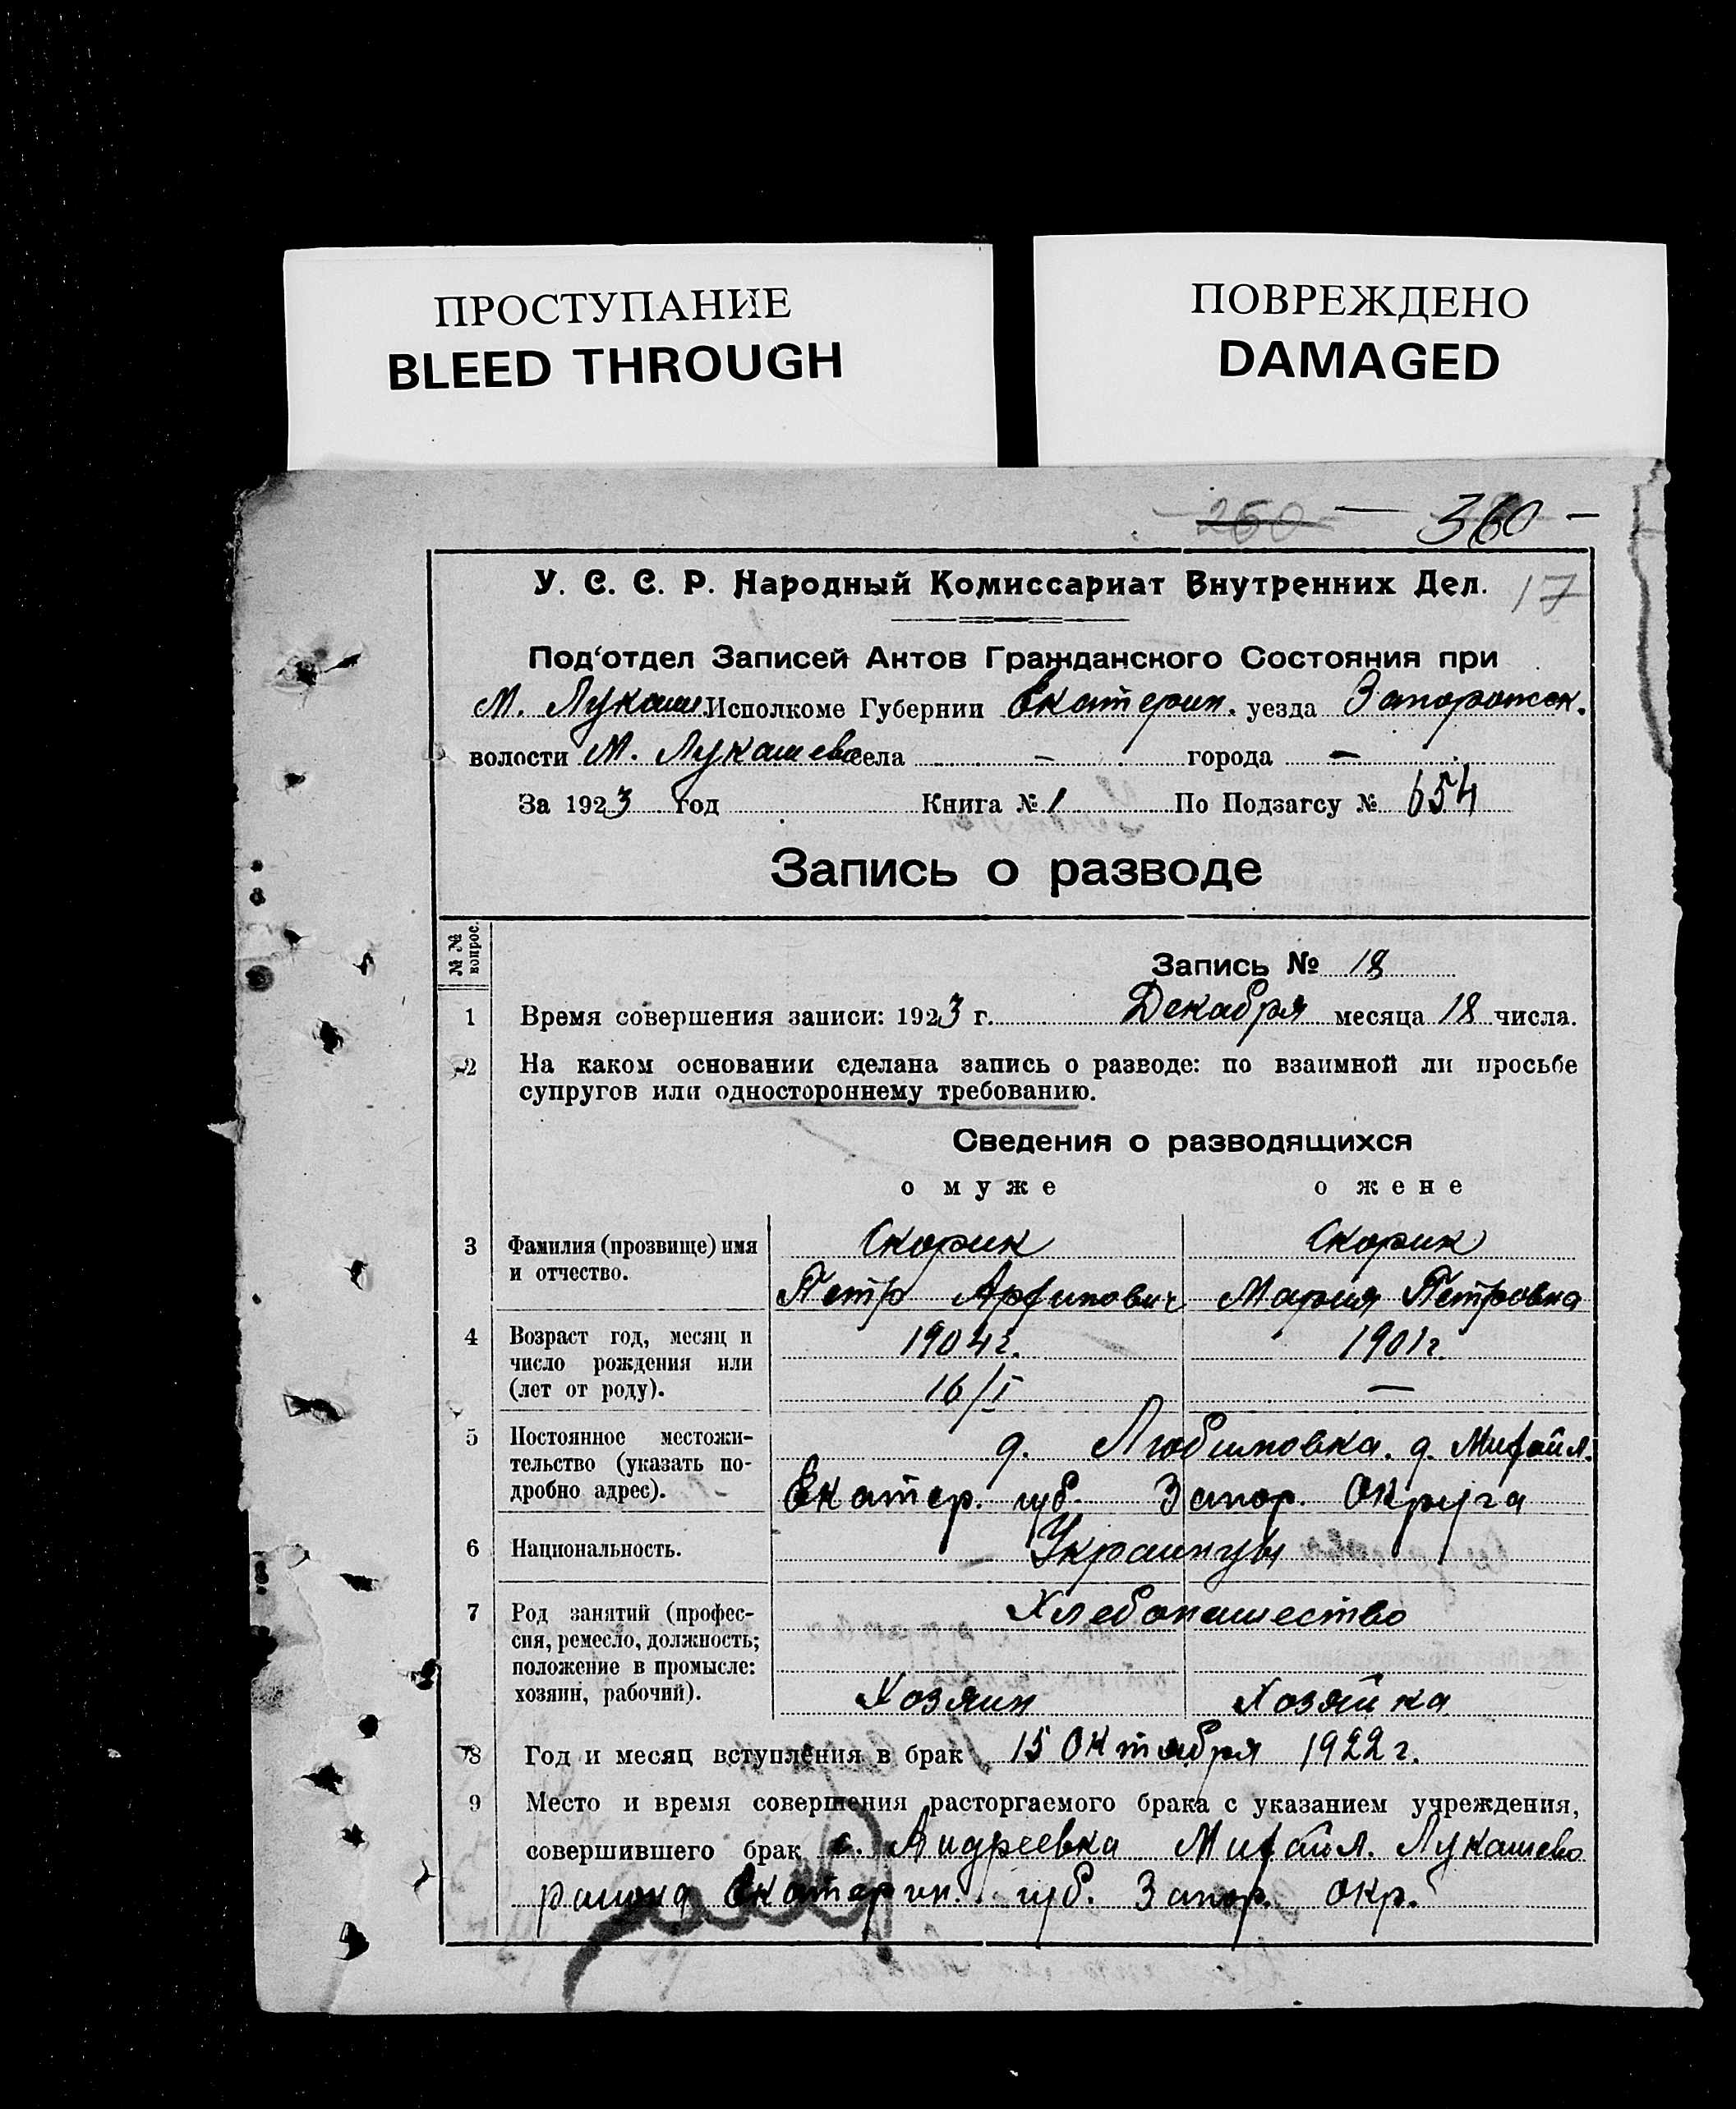 ПРОСТУПАНИЕ
BLEED THROUGH
ПОВРЕЖДЕНО
DAMAGED
260 — 360 —
У. С. С. Р. Народный Комиссариат Внутренних Дел. 17
Под'отдел Записей Актов Гражданского Состояния при
М. Лукаш. Исполкоме Губернии Екатерин. уезда Запорожск.
волости М. Лукашево села — города —
За 1923 год Книга № 1 По Подзагсу № 654
Запись о разводе
№ № вопрос.
Запись № 18
1 Время совершения записи: 1923 г. Декабря месяца 18 числа.
2 На каком основании сделана запись о разводе: по взаимной ли просьбе
супругов или одностороннему требованию.
Сведения о разводящихся
о муже о жене
3 Фамилия (прозвище) имя Скорик Скорик
и отчество. Петр Мария Петровна
4 Возраст год, месяц и 1904 г. 1901 г.
число рождения или
(лет от роду). 16/I —
5 Постоянное местожи- д. Любимовка. Михайл.
тельство (указать по-
дробно адрес). Екатер. губ. Запор. Округа
6 Национальность. Украинцы
7 Род занятий (профес- Хлебопашество
сия, ремесло, должность;
положение в промысле:
хозяин, рабочий). Хозяин Хозяйка
8 Год и месяц вступления в брак 15 Октября 1922 г.
9 Место и время совершения расторгаемого брака с указанием учреждения,
совершившего брак с. Андреевка Михайл. Лукашево
района Екатерин. губ. Запор. окр.